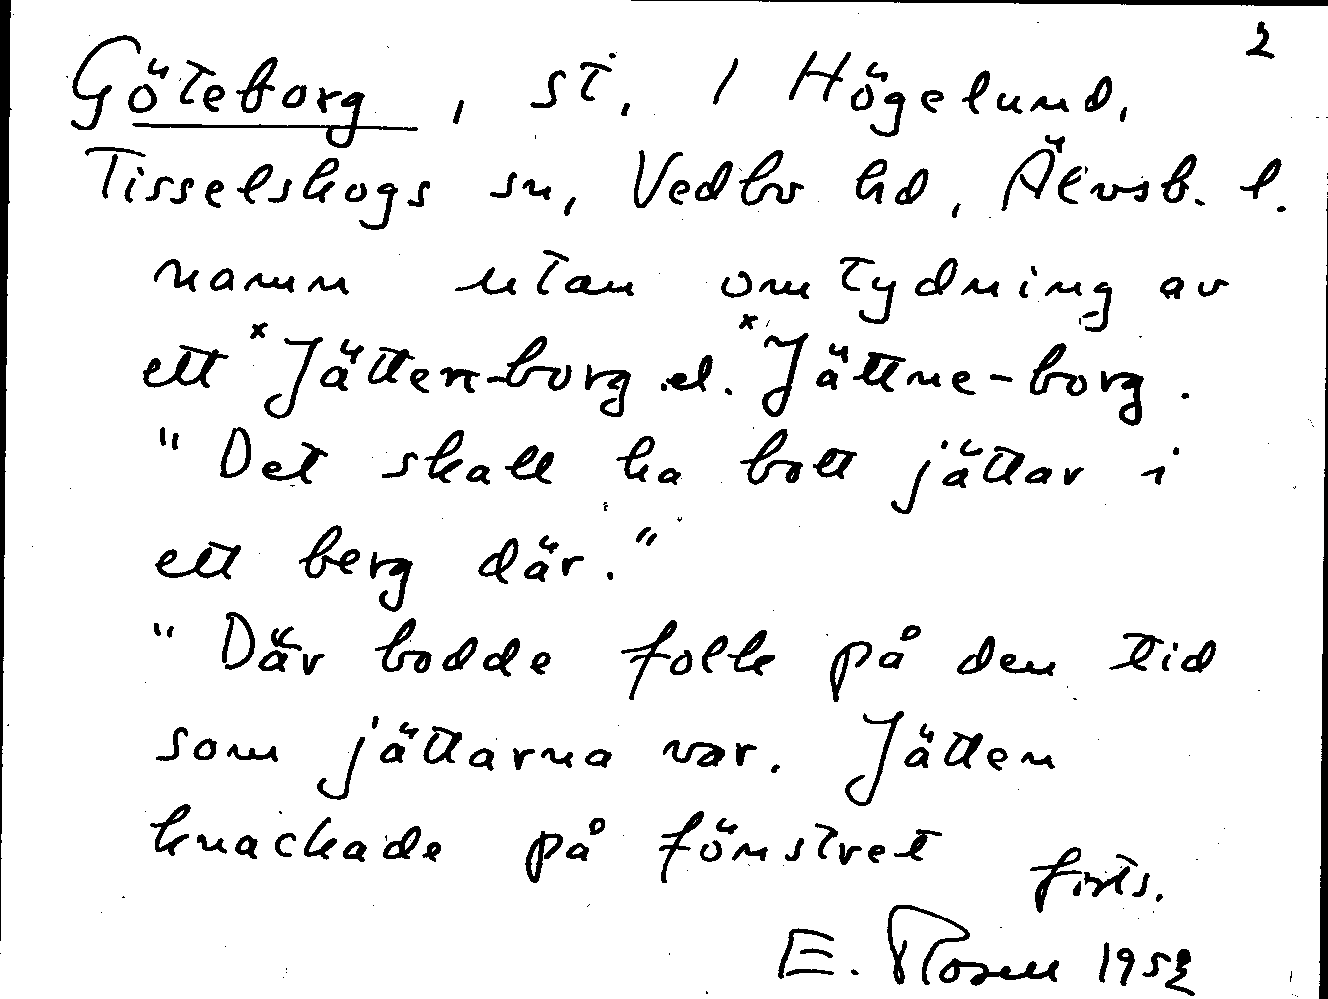 2
Göteborg, st. / Högelund,
Tisselskogs sn, Vedbo hd, Älvsb. l.
namn utan omtydning av
ett *Jätten-borg el. *Jättne-borg.
"Det skall ha bott jättar i
ett berg där."
"Där bodde folk på den tid
som jättarna var. Jätten
knackade på fönstret forts.
E. Rosell